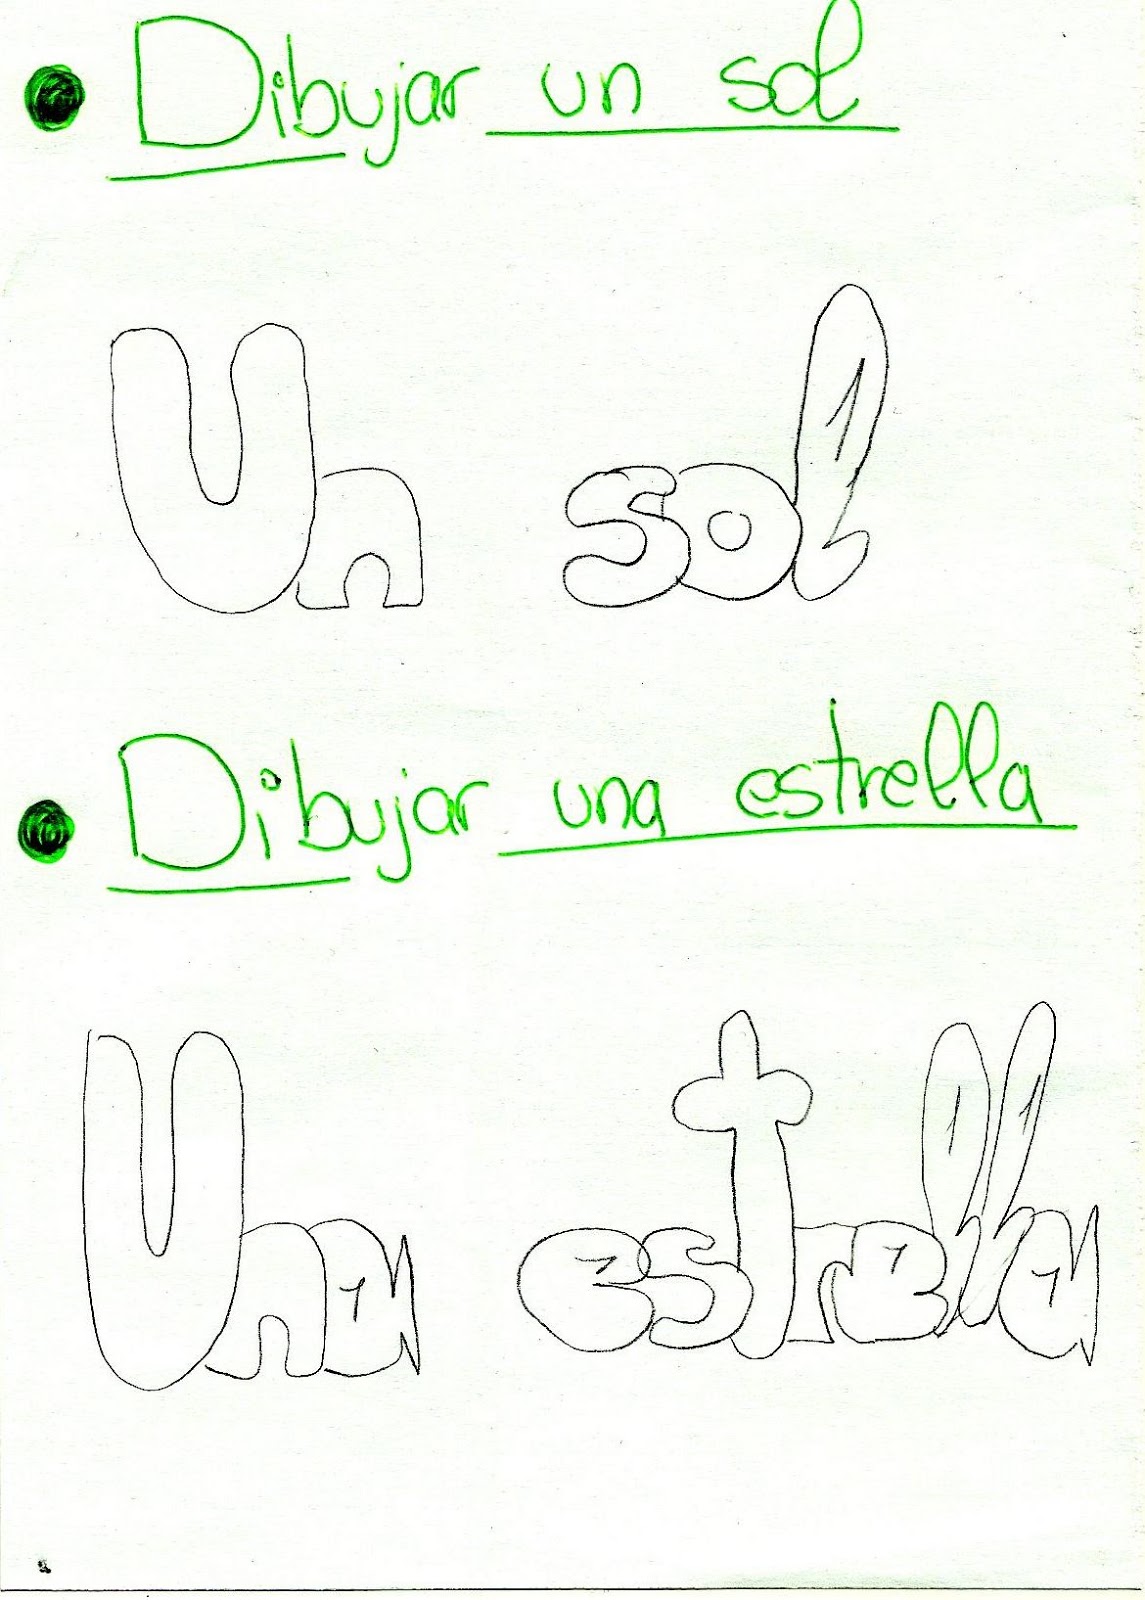 Dibujar un sol
Un sol
Dibujar una estrella
Una estrella